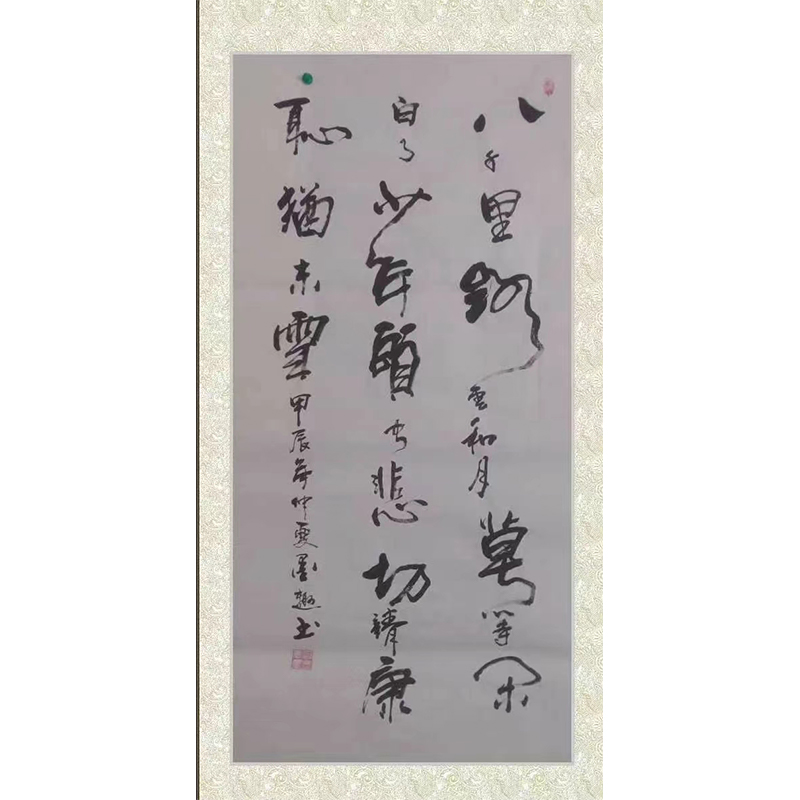 八千里路雲和月莫等閑
白了少年頭空悲切靖康
恥猶未雪甲辰年仲夏墨趣书